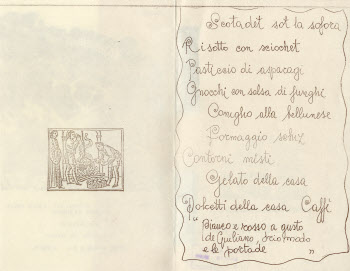 Scota det sot la sofora
Risotto con sciochet
Pasticcio di asparagi
Gnocchi con salsa di funghi
Coniglio alla bellunese
Formaggio schiz
Contorni misti
Gelato della casa
Dolcetti della casa Caffi
"Bianco e rosso a gusto
de Giuliano, secondo
e le portade "